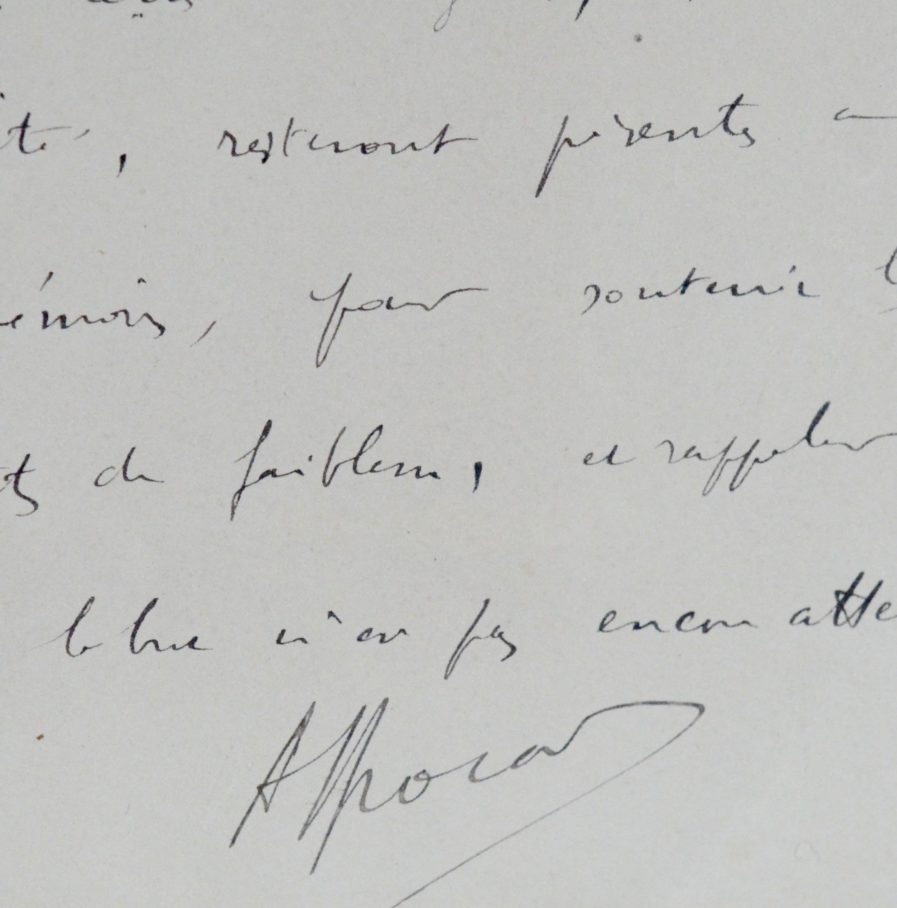 ité, resteront présents
mémoire, pour soutenir
de faiblesse, et rappeler
le but n'est pas encore atte